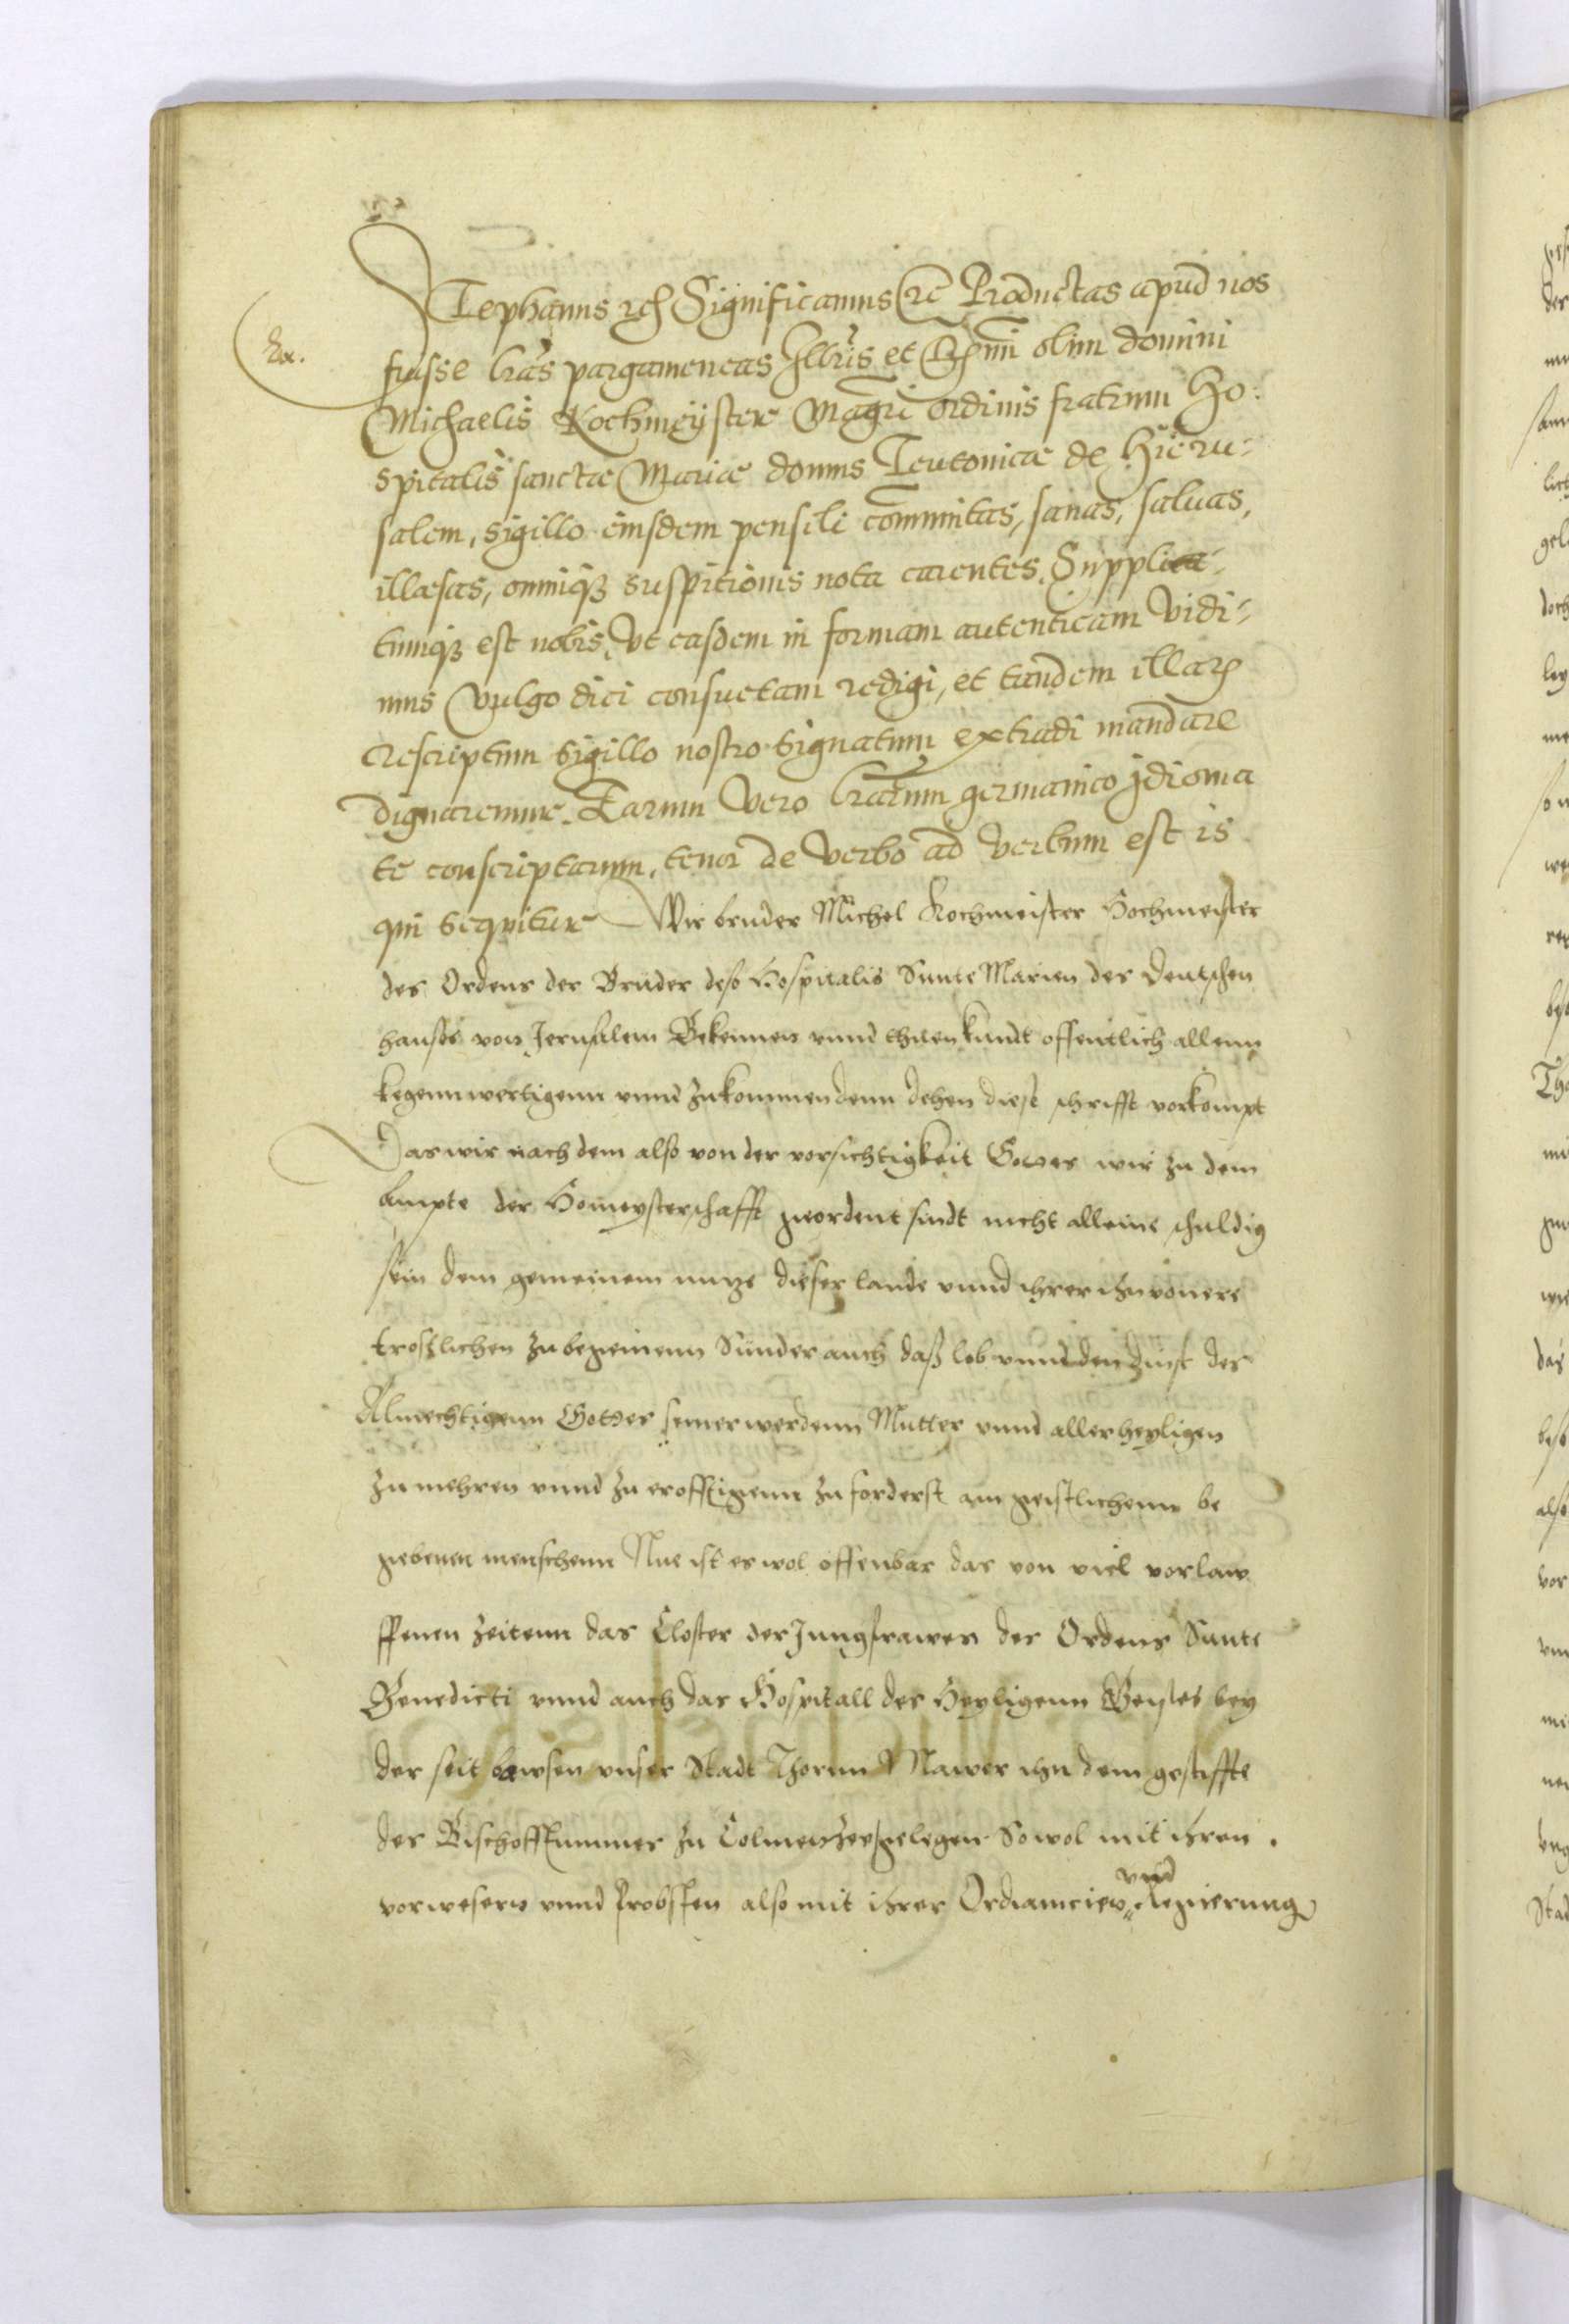 Stephanus rex Significamus etc Productas apud nos
Ex.
fuisse lras pargameneas Illris et Rmi olim domini
Michaelis Kochmeyster Magri ordinis fratrum Ho-
spitalis sanctae Mariae domus Teutonicae de Hieru-
salem, sigillo eiusdem pensili communitas, sanas, saluas,
illaesas, omniq3 suspitionis nota carentes, Supplica-
tumq3 est nobis, Vt easdem in formam autenticam Vidi-
mus Vulgo dici consuetam redigi, et tandem illarum
rescriptum sigillo nostro signatum extradi mandare
dignaremur. Earum Vero lrarum germanico jdioma
te conscriptarum, tenor de Verbo ad Verbum est is
qui sequitur Wir bruder Michel Kochmeister Hochmeister
des Ordens der Brüder deß Hospitalis Sunte Marien des Deutschen
hauses von Jerusalem Bekennen vnnd thuen kundt offentlich allenn
kegennwertigenn vnnd zukommendenn dehen diese schrifft vorkompt
Das wir nach dem also von der vorsichtigkeit Gottes wir zu dem
Ampte der Homeysterschafft geordent sindt nicht alleine schuldig
sein dem gemeinem nutze dieser lande vnnd ihrer inwonere
trostlichen zu begeinenn Sunder auch daß lob vnnd den dinst des
Almechtigenn Gottes seiner werdenn Mutter vnnd aller heyligen
zu mehren vnnd zu zuforderst am geistlichenn be
gebenen menschenn Nue ist es wol offenbar das von viel vorlaw
ffenen zeitenn das Closter der Jungfrawen des Ordens Sunte
Benedicti vnnd auch das Hospitall des Heyligenn Geistes bey
der seit bawsen vnser Stadt Thorun Mawer ihn dem gestiffte
des Bischofftummes zu Colmensehe gelegen Sowol mit ihren
vorwesern vnnd Probsten also mit ihrer vnnd Regierung